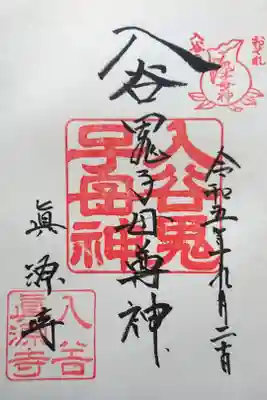 おそれ
入谷
鬼子母神
入谷鬼子母尊神
入谷鬼
子母神
令和五年九月二十日
眞源寺
入谷
眞源寺